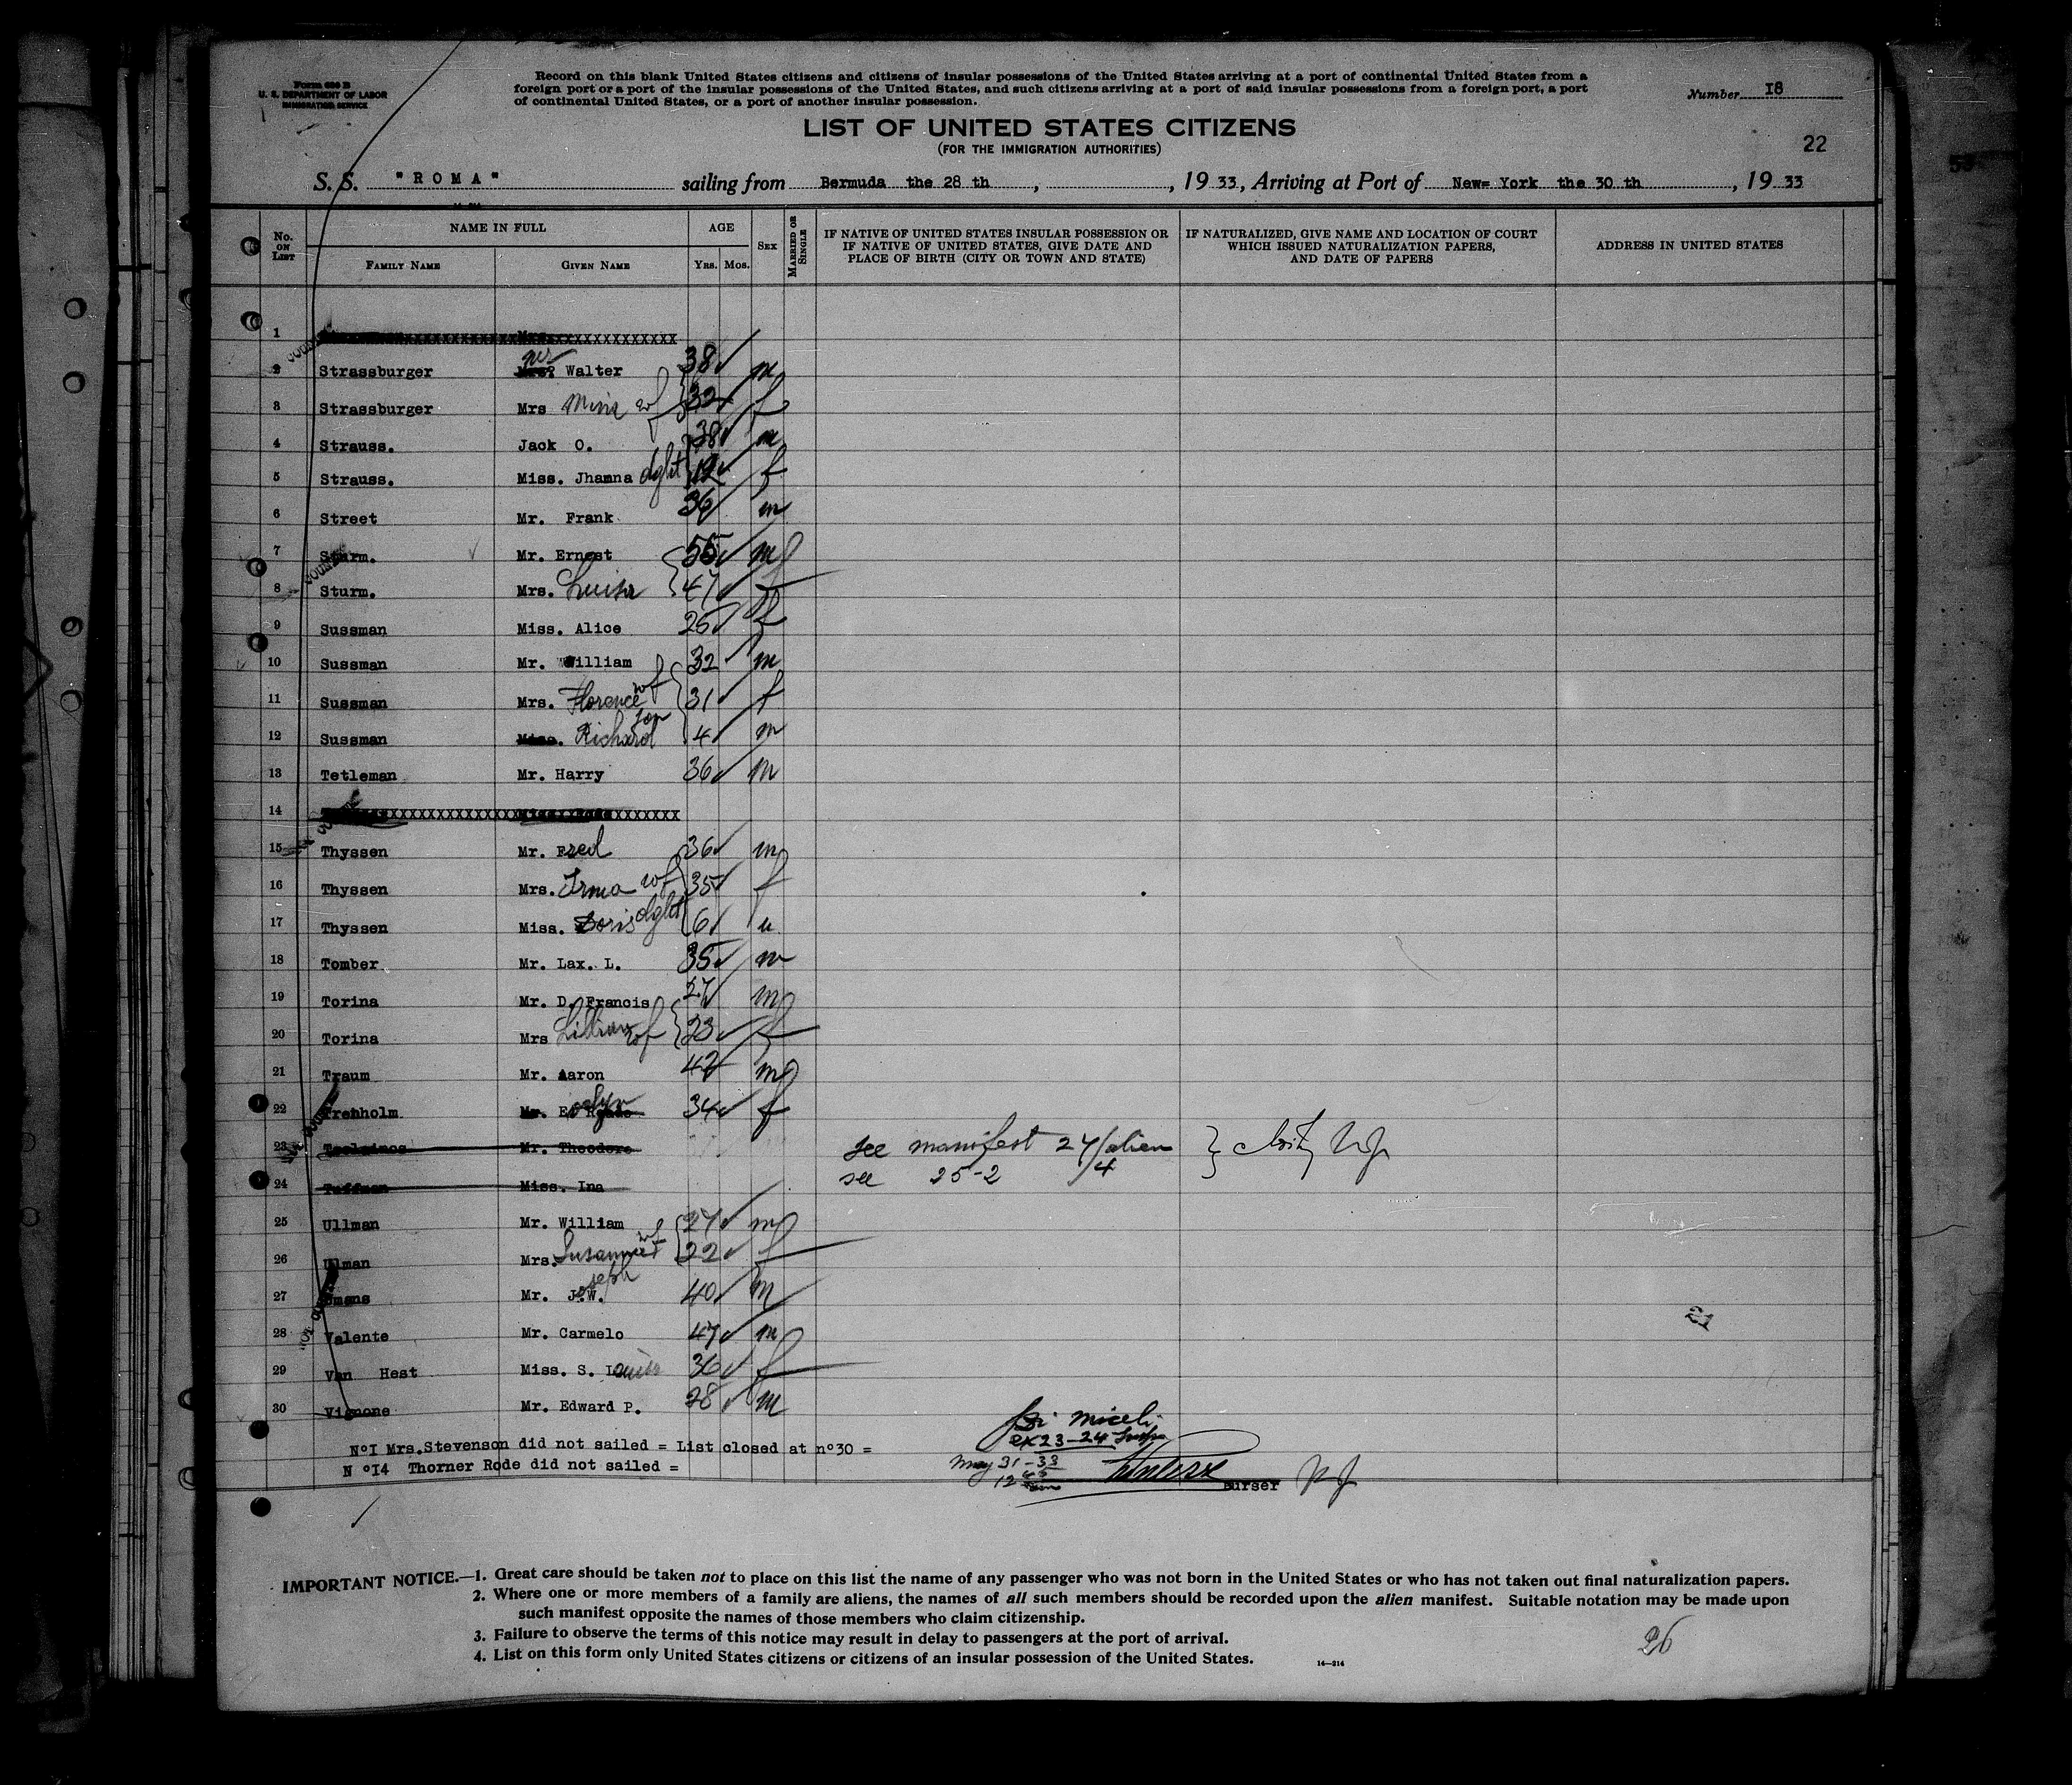 Form 630 B
U. S. DEPARTMENT OF LABOR
IMMIGRATION SERVICE
Record on this blank United States citizens and citizens of insular possessions of the United States arriving at a port of continental United States from a
foreign port or a port of the insular possessions of the United States, and such citizens arriving at a port of said insular possessions from a foreign port, a port
of continental United States, or a port of another insular possession.
Number 18
LIST OF UNITED STATES CITIZENS
(FOR THE IMMIGRATION AUTHORITIES)
22
S. S. "ROMA" sailing from Bermuda the 28 th , , 19 33, Arriving at Port of New= York the 30 th , 19 33
No. ON LIST NAME IN FULL FAMILY NAME GIVEN NAME AGE YRS. MOS. SEX MARRIED OR SINGLE IF NATIVE OF UNITED STATES INSULAR POSSESSION OR IF NATIVE OF UNITED STATES, GIVE DATE AND PLACE OF BIRTH (CITY OR TOWN AND STATE) IF NATURALIZED, GIVE NAME AND LOCATION OF COURT WHICH ISSUED NATURALIZATION PAPERS, AND DATE OF PAPERS ADDRESS IN UNITED STATES
1
2 Strassburger Mr Walter 38 m
3 Strassburger Mrs wf 32 f
4 Strauss. Jack O. 38 m
5 Strauss. Miss. Jhanna dght 12 f
6 Street Mr. Frank 36 m
7 Sturm. Mr. Ernest 55 m
8 Sturm. Mrs. Luisa 47 f
9 Sussman Miss. Alice 25 f
10 Sussman Mr. William 32 m
11 Sussman Mrs. Florence wf 31 f
12 Sussman Richard son 4 m
13 Tetleman Mr. Harry 36 m
14
15 Thyssen Mr. Fred 36 m
16 Thyssen Mrs. Irma wf 35 f
17 Thyssen Miss. Doris dght 6 u
18 Tomber Mr. Lax. L. 35 m
19 Torina Mr. D. Francis 27 m
20 Torina Mrs Lillian wf 23 f
21 Traum Mr. Aaron 42 m
22 Trenholm Evelyn 34 f
23 Mr. Theodore see manifest 27/alien
24 Tuffman Miss. Ina see 25-2 /4
25 Ullman Mr. William 27 m
26 Ulman Mrs. Susanne wf 22 f
27 Umans Mr. Joseph W. 40 m
28 Valente Mr. Carmelo 47 m
29 Van Hest Miss. S. Louise 36 f
30 Vignone Mr. Edward P. 28 m
21
N°I Mrs.Stevenson did not sailed = List closed at n°30 =
N °I4 Thorner Rode did not sailed =
Miceli
ex 23-24
May 31-33
12
Purser
IMPORTANT NOTICE.—1. Great care should be taken not to place on this list the name of any passenger who was not born in the United States or who has not taken out final naturalization papers.
2. Where one or more members of a family are aliens, the names of all such members should be recorded upon the alien manifest. Suitable notation may be made upon
such manifest opposite the names of those members who claim citizenship.
3. Failure to observe the terms of this notice may result in delay to passengers at the port of arrival.
4. List on this form only United States citizens or citizens of an insular possession of the United States.
14—214
26